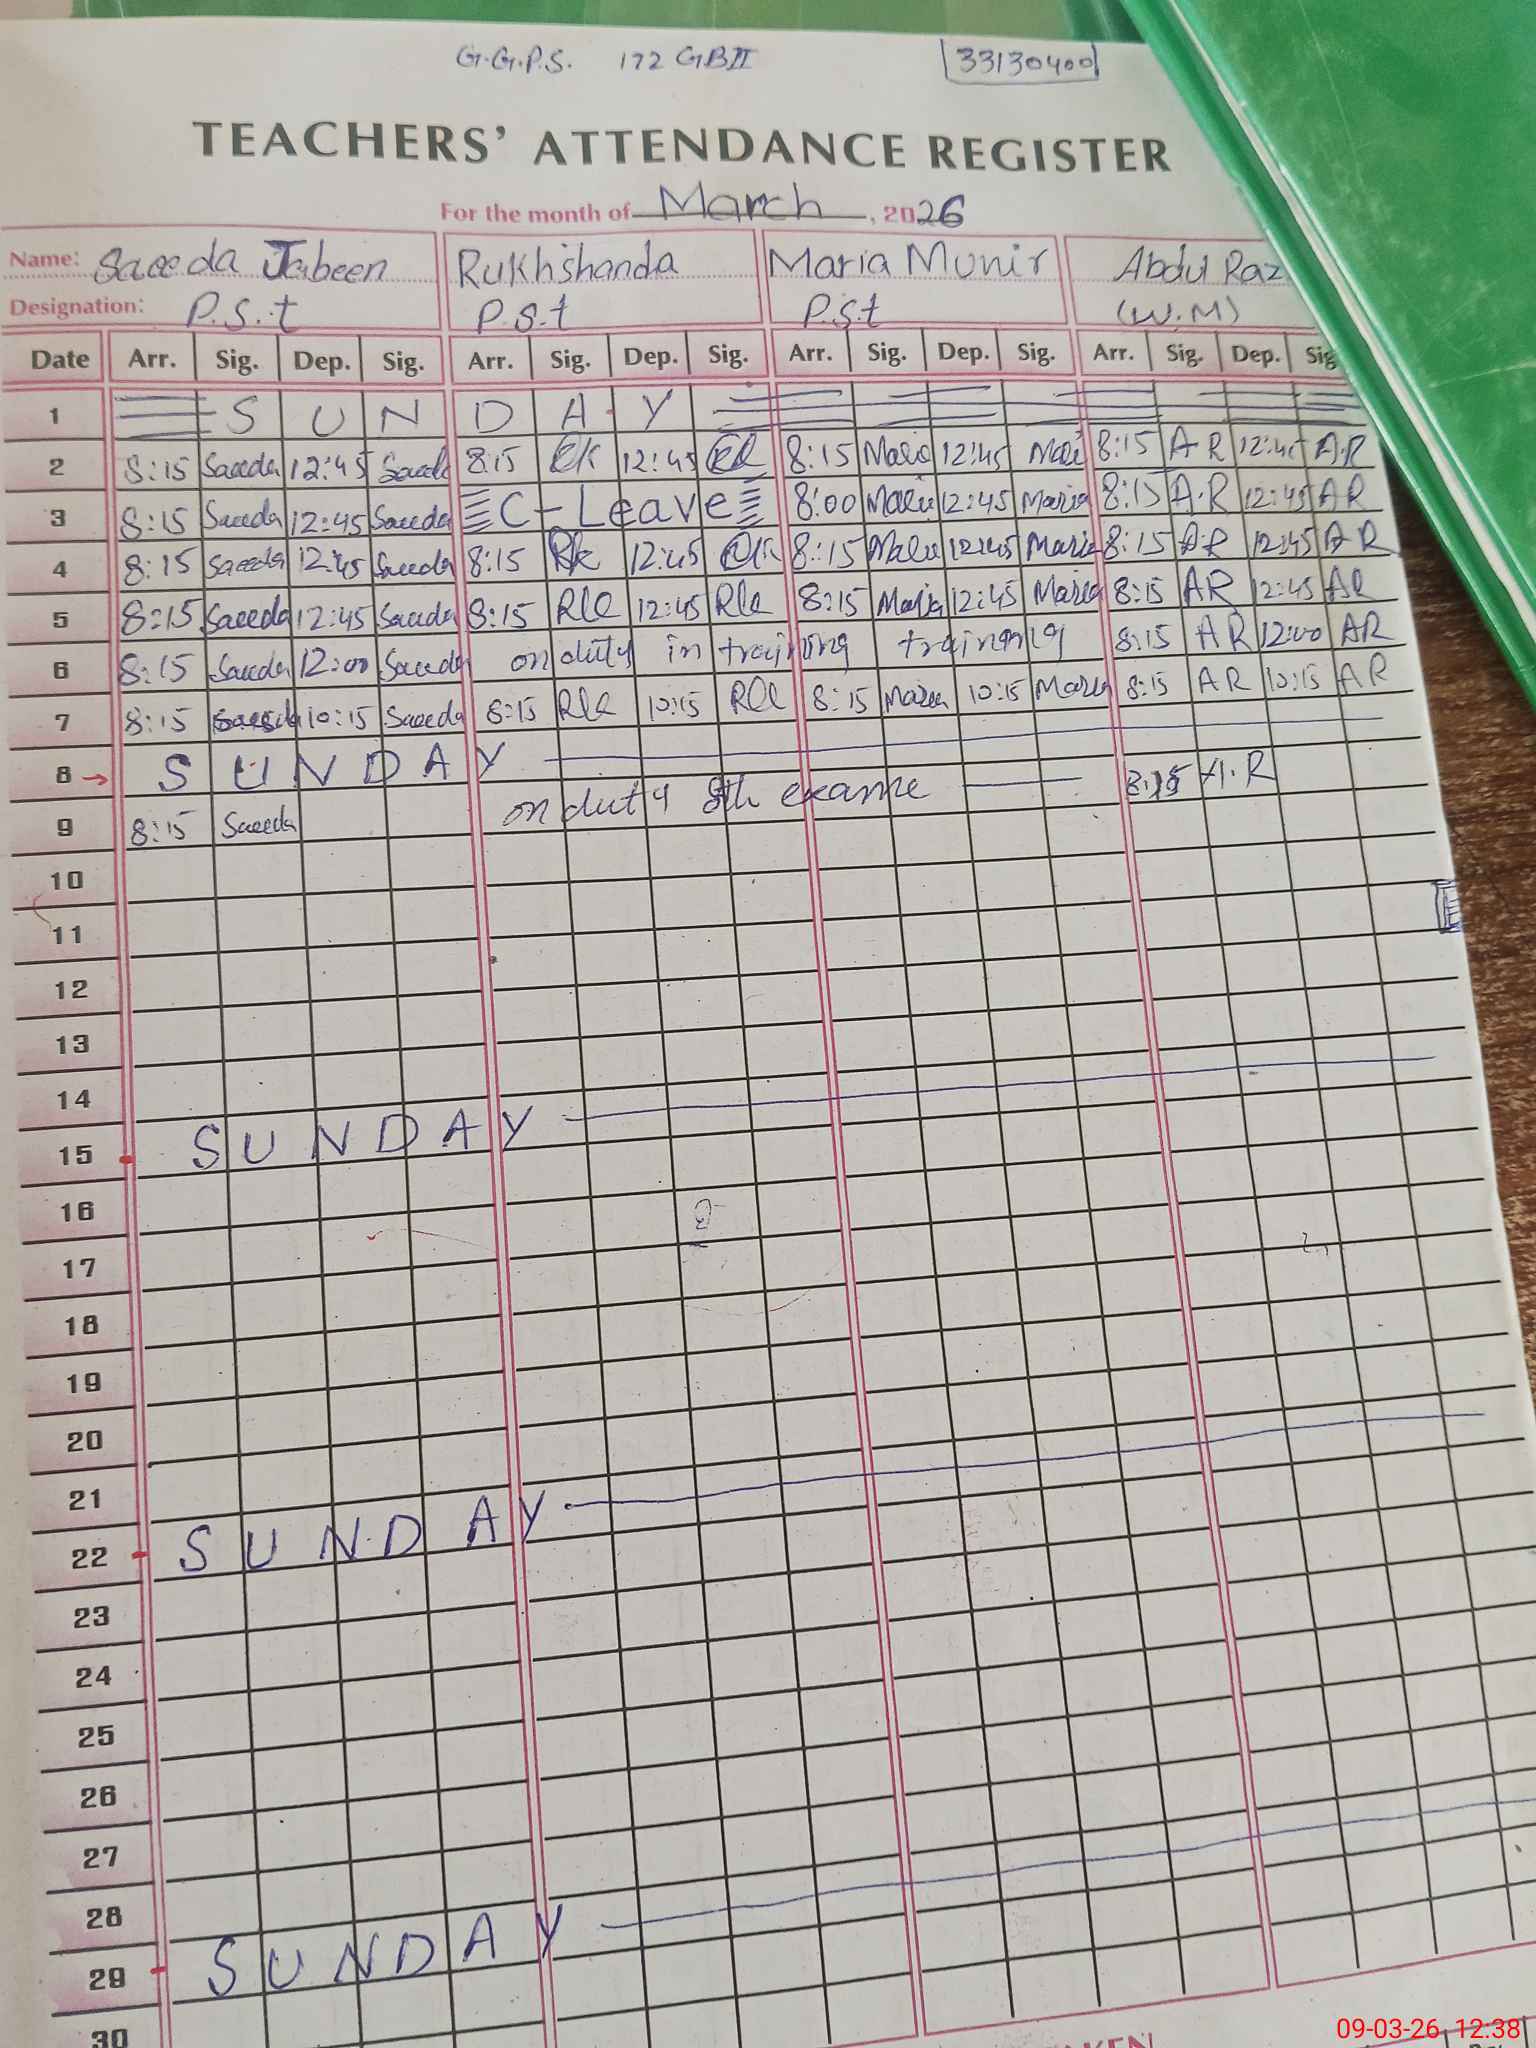 G.G.P.S. 172 GB II 33130400
TEACHERS' ATTENDANCE REGISTER
For the month of March, 2026
Name: Saeeda Jabeen Rukhshanda Maria Munir Abdul Raz
Designation: P.S.t P.S.t P.S.t (W.M)
Date Arr. Sig. Dep. Sig. Arr. Sig. Dep. Sig. Arr. Sig. Dep. Sig. Arr. Sig. Dep. Sig
1 S U N D A Y
2 8:15 Saeeda 12:45 Saeed 8:15 12:45 8:15 Maria 12:45 8:15 A R 12:45 A.R
3 8:15 Saeeda 12:45 Saeeda C-Leave 8:00 Maria 12:45 Maria 8:15 A.R 12:45 AR
4 8:15 Saeeda 12:45 Saeeda 8:15 Rk 12:45 8:15 12:45 Maria 8:15 A.R 12:45 A R
5 8:15 Saeeda 12:45 Saeeda 8:15 12:45 8:15 Maria 12:45 Maria 8:15 AR 12:45 AR
6 8:15 Saeeda 12:00 Saeeda on duty in training training 8:15 AR 12:00 AR
7 8:15 Saeeda 10:15 Saeeda 8:15 10:15 8:15 Maria 10:15 Maria 8:15 AR 10:15 AR
8 → S U N D A Y
9 8:15 Saeeda on duty 8th exame 8:15 A.R
10
11
12
13
14
15 S U N D A Y
16
17
18
19
20
21
22 S U N D A Y
23
24
25
26
27
28
29 S U N D A Y
30
09-03-26 12:38